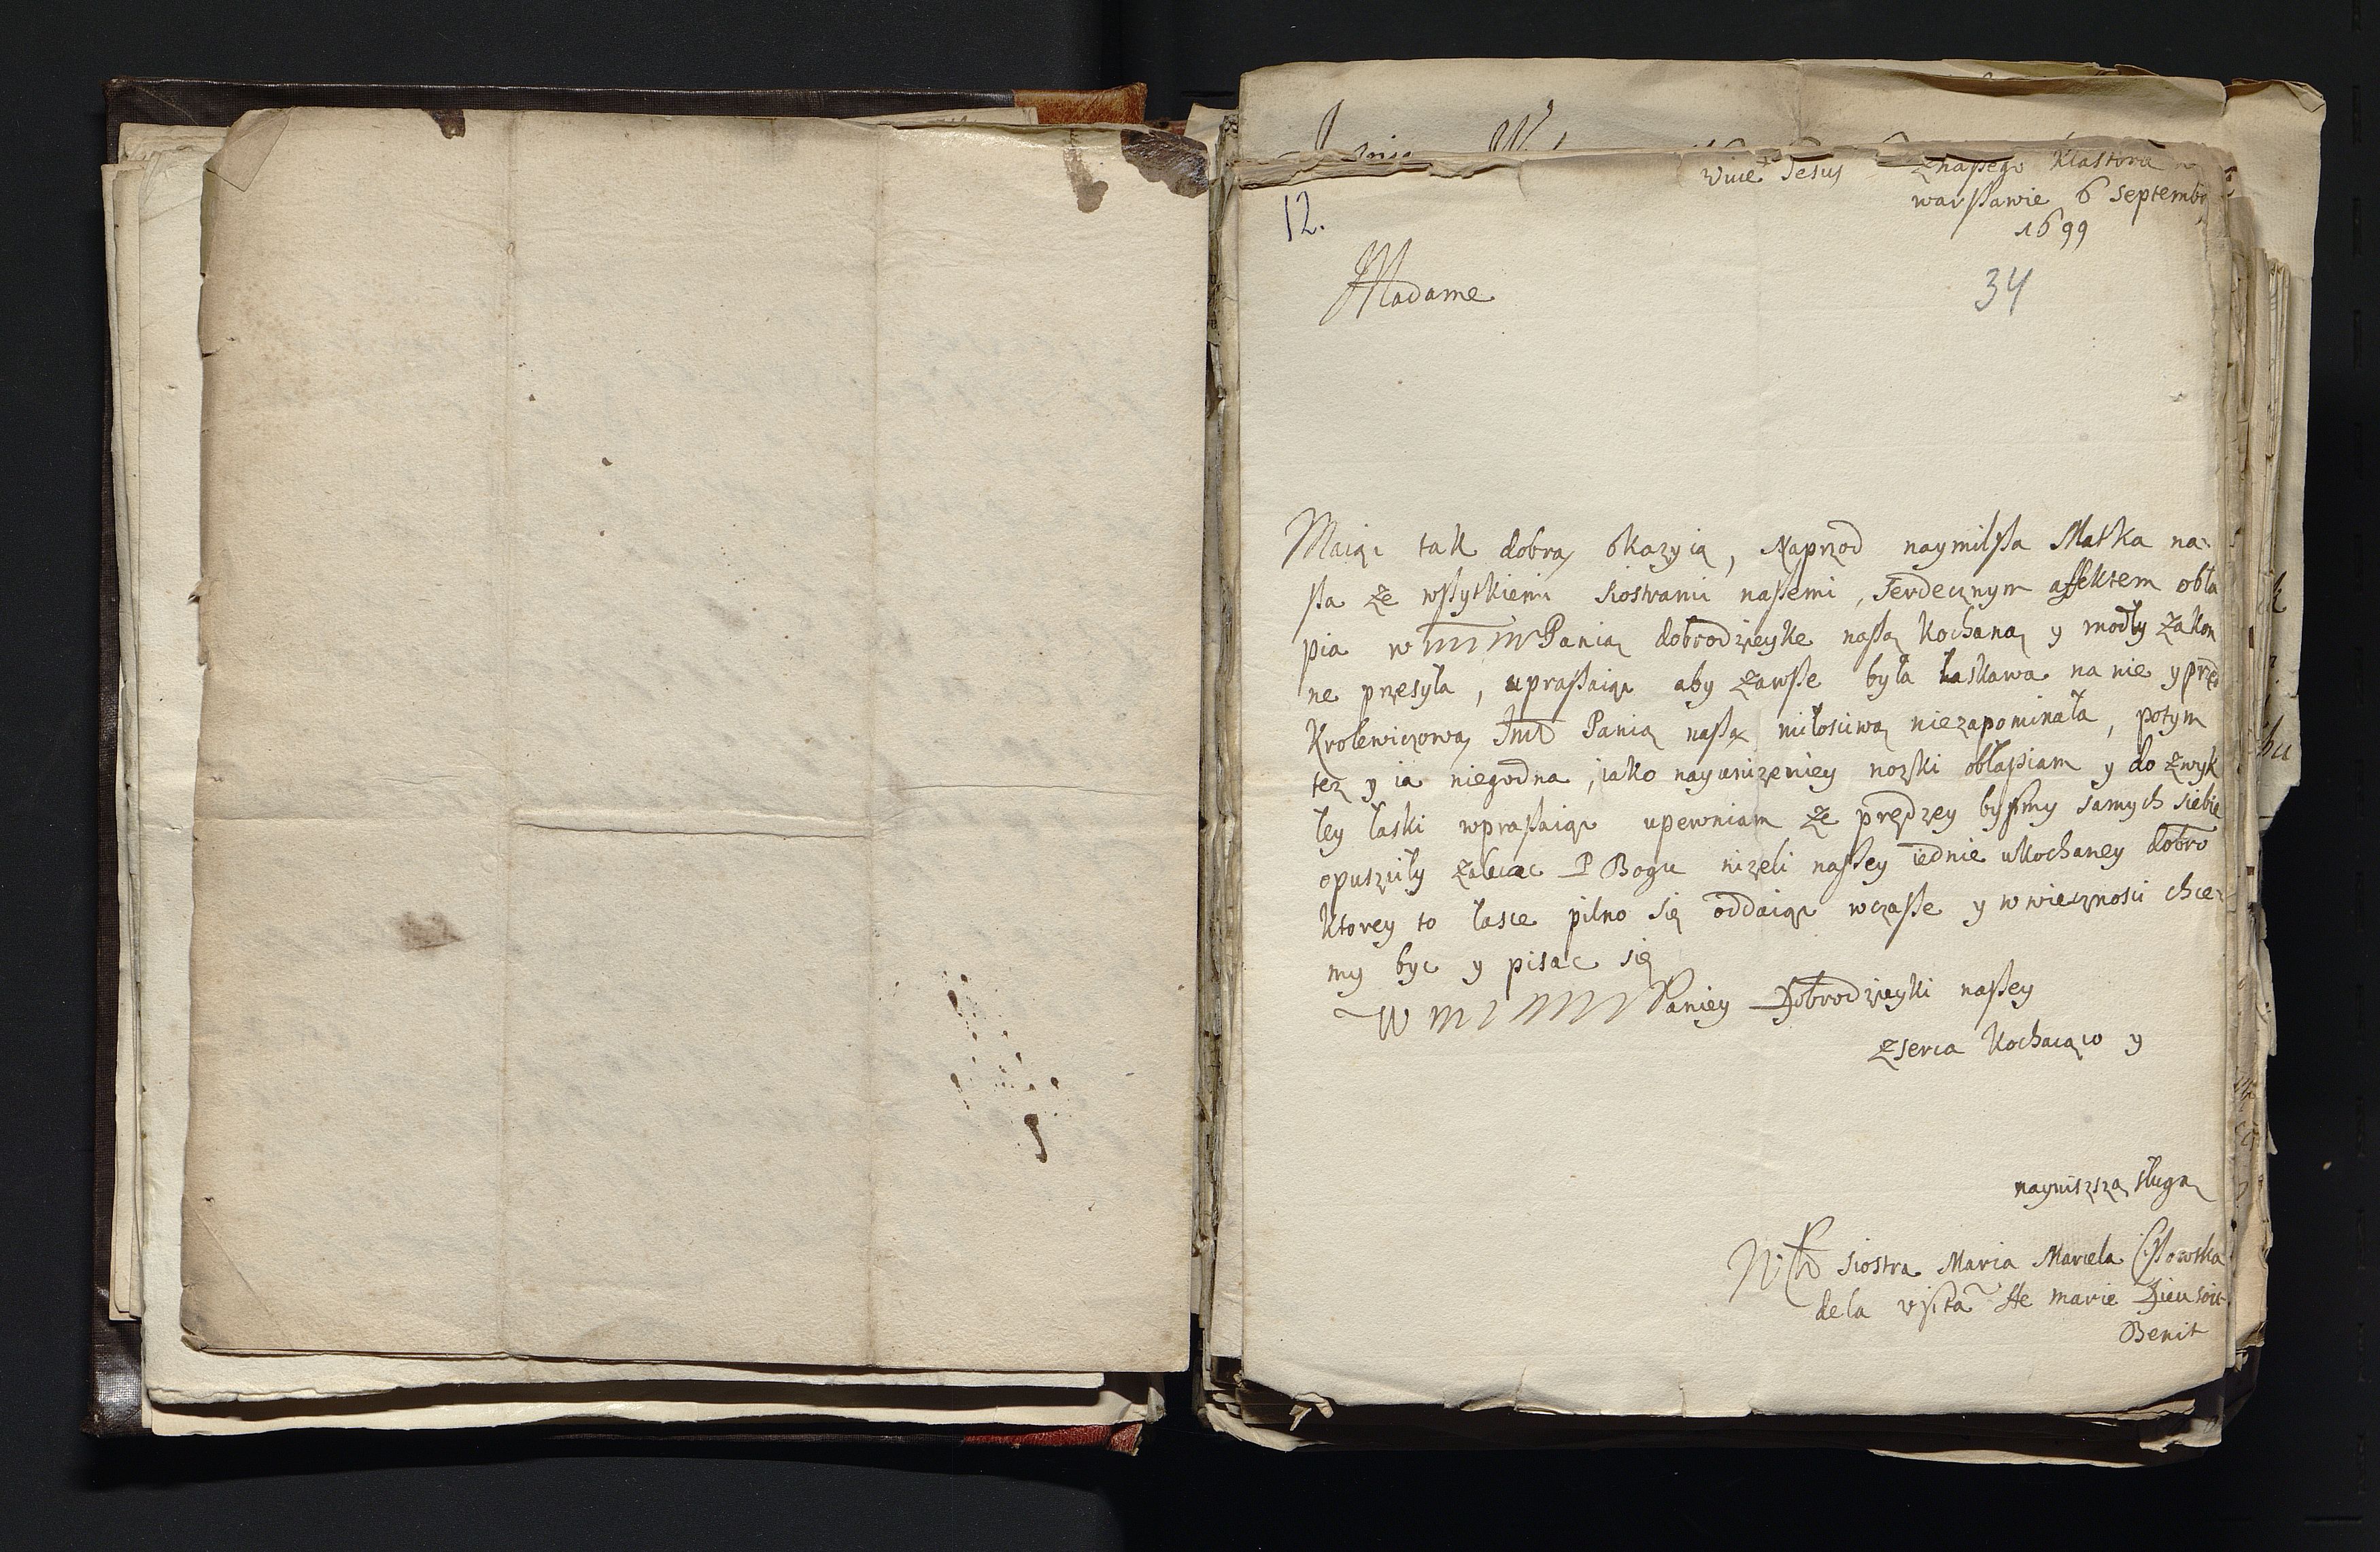 Vive † Jesus
Znaßego Klastora w
warßawie 6 Septembr
1699
12.
34
Madame
Maiąc tak dobrą okazyią, Naprzod naymilßa Matka na-
ßa ze wßytkiemi siostrami naßemi, serdecznym affektem obła
pia w m m Panią dobrodzieyke naßą kochaną y modły zakon
ne przesyła, upraßaiąc aby zawße była łaskawa na nie y przed
Krolewiczową Jmć Panią naßą miłosciwą niezapominała, potym
tez y ia niegodna, iako nayunizeniey nozki obłapiam y do zwyk
łey łaski wpraßaiąc upewniam ze prędzey byßmy samych siebie
opuszciły zalecac P Bogu nizeli naßey iednie ukochaney dobro
ktorey to łasce pilno się oddaiąc wczaße y w wiecznosci chce-
my byc y pisac się
W m m Paniey Dobrodzieyki naßey
Zserca kochaiącą y
nayniszszą sługą
siostra Maria Marcela
de la visita Ste marie Dieu soit
Benit